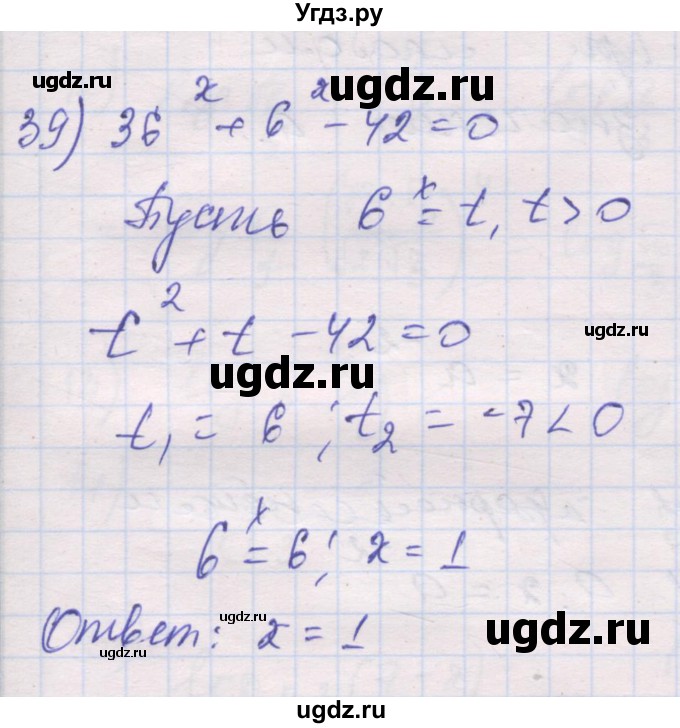 Угдз.ру
ugdz.ru ugdz.ru
39) 36^x + 6^x - 42 = 0
Пусть 6^x = t, t > 0
t^2 + t - 42 = 0
ugdz.ru
ugdz.ru
t₁ = 6 ; t₂ = -7 < 0
6^x = 6; x = 1
ugdz.ru
ugdz.ru
Ответ: x = 1
ugdz.ru
ugdz.ru